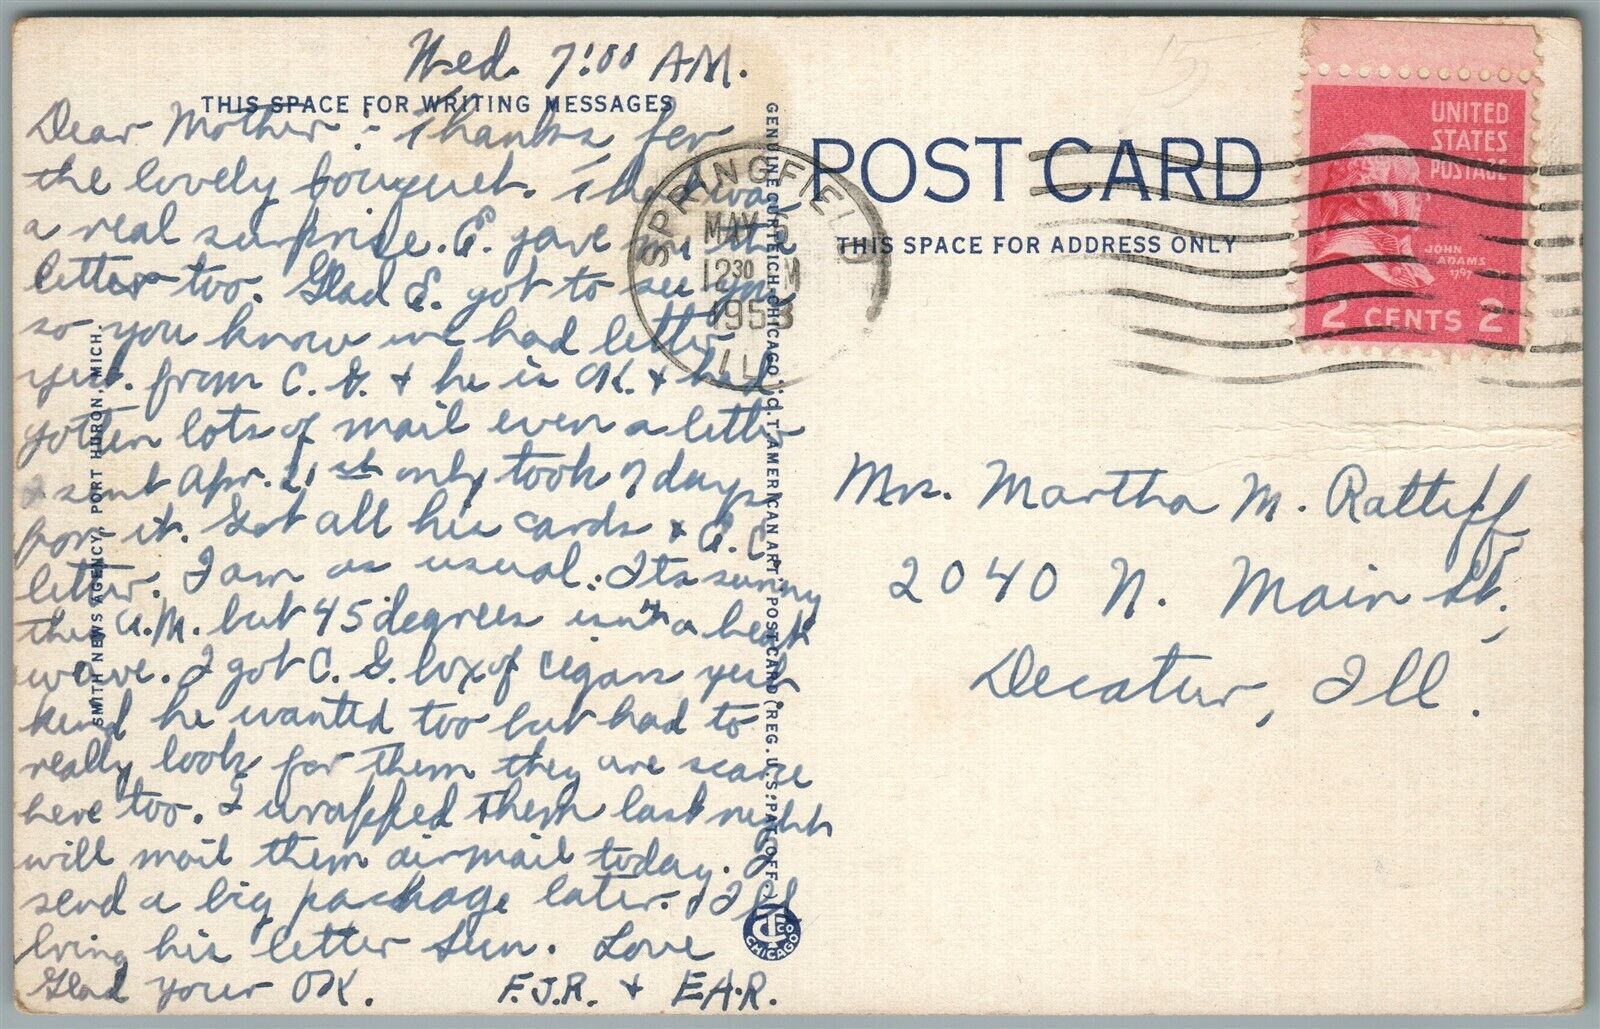 Wed. 7:00 AM.
THIS SPACE FOR WRITING MESSAGES
Dear Mother: Thanks for
the lovely bouquet. That was
a real surprise. E. gave me the
letter too. Glad E. got to see you
so you know we had letter
yest. from C. G. & he is OK. & had
gotten lots of mail even a letter
I sent Apr. 21st only took 7 days
for it. Got all his cards & C.C.
letter. I am as usual. Its sunny
this A.M. but 45 degrees isn't a heat
wave. I got C. G. box of cigars yest.
kind he wanted too but had to
really look for them they are scarce
here too. I wrapped them last night
will mail them airmail today. I
send a big package later. I'll
bring his letter Sun. Love
Glad your OK. F.J.R. & E.A.R.
SMITH NEWS AGENCY, PORT HURON, MICH.
GENUINE CURTEICH-CHICAGO "C.T. AMERICAN ART" POST CARD (REG. U.S. PAT. OFF.)
CTCO CHICAGO
POST CARD
THIS SPACE FOR ADDRESS ONLY
SPRINGFIELD
MAY 6
12 30 M
1953
ILL
UNITED
STATES
POSTAGE
JOHN
ADAMS
1797
2 CENTS 2
Mrs. Martha M. Ratliff
2040 N. Main St,
Decatur, Ill.